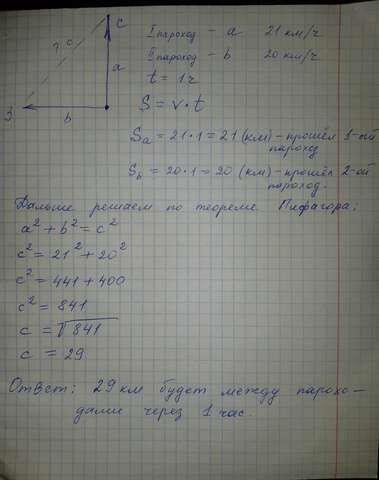 с
? c
a
З
b
I пароход - a 21 км/ч
II пароход - b 20 км/ч
t = 1 ч
S = v·t
Sa = 21·1 = 21 (км) - прошёл 1-ый
пароход
Sb = 20·1 = 20 (км) - прошёл 2-ой
пароход.
Дальше решаем по теореме Пифагора:
a² + b² = c²
c² = 21² + 20²
c² = 441 + 400
c² = 841
c = √841
c = 29
Ответ: 29 км будет между парохо-
дами через 1 час.